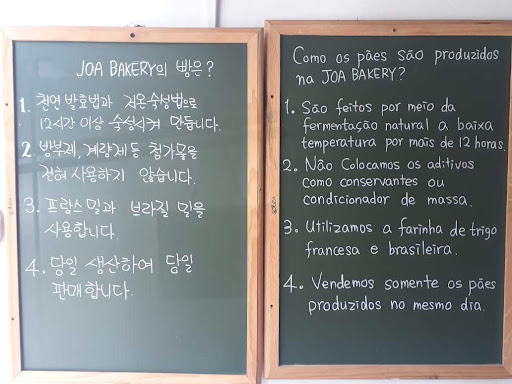 JOA BAKERY의 빵은?
1. 천연 발효법과 저온숙성법으로
12시간 이상 숙성시켜 만듭니다.
2. 방부제, 계량제 등 첨가물을
전혀 사용하지 않습니다.
3. 프랑스 밀과 브라질 밀을
사용합니다.
4. 당일 생산하여 당일
판매합니다.
Como os pães são produzidos
na JOA BAKERY?
1. São feitos por meio da
fermentação natural a baixa
temperatura por mais de 12 horas.
2. Não Colocamos os aditivos
como conservantes ou
condicionador de massa.
3. Utilizamos a farinha de trigo
francesa e brasileira.
4. Vendemos somente os pães
produzidos no mesmo dia.